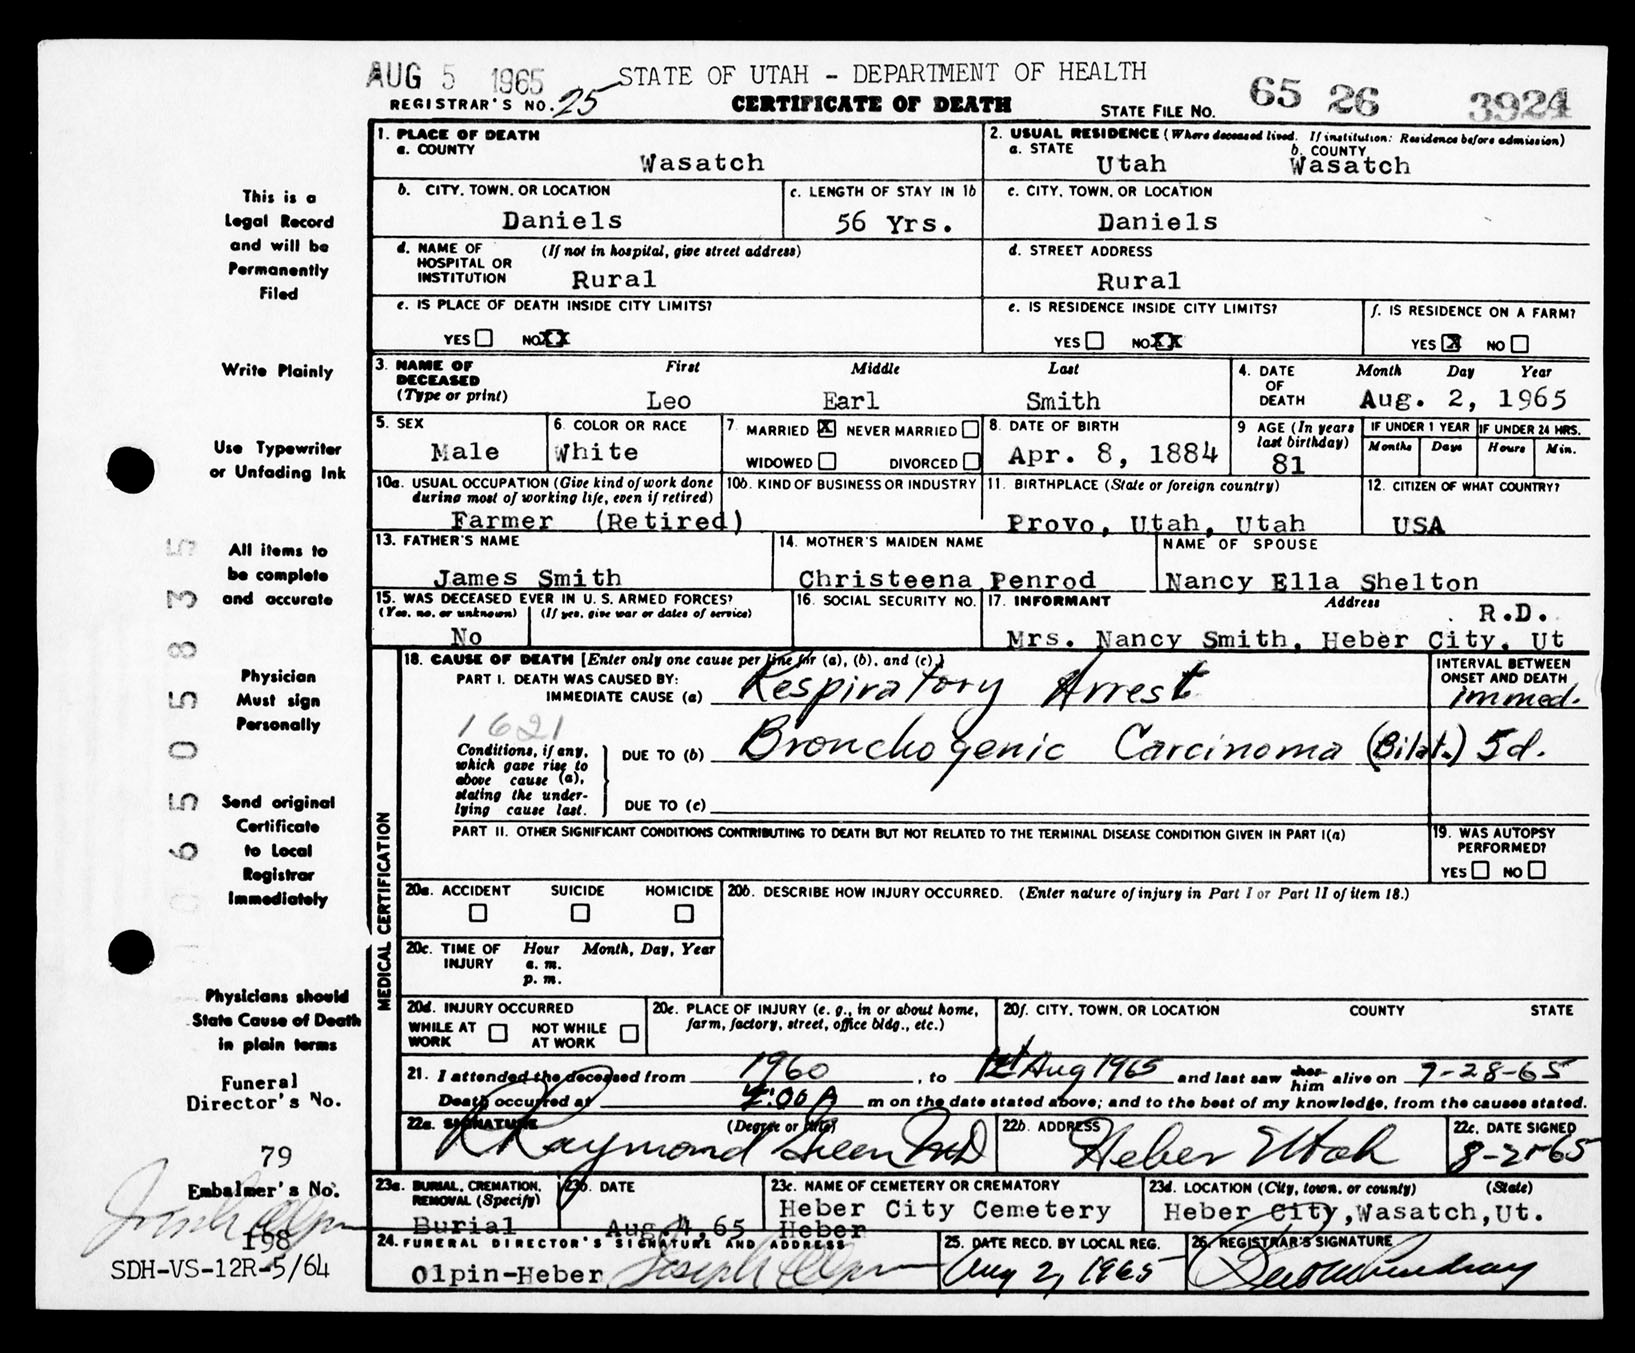 AUG 5 1965
STATE OF UTAH - DEPARTMENT OF HEALTH
REGISTRAR'S NO. 25
CERTIFICATE OF DEATH
STATE FILE NO. 65 26 3924
1. PLACE OF DEATH
a. COUNTY
Wasatch
2. USUAL RESIDENCE (Where deceased lived. If institution: Residence before admission)
a. STATE
Utah
b. COUNTY
Wasatch
b. CITY, TOWN, OR LOCATION
Daniels
c. LENGTH OF STAY IN 1b
56 Yrs.
c. CITY, TOWN, OR LOCATION
Daniels
d. NAME OF HOSPITAL OR INSTITUTION
(If not in hospital, give street address)
Rural
d. STREET ADDRESS
Rural
e. IS PLACE OF DEATH INSIDE CITY LIMITS?
YES NO XX
e. IS RESIDENCE INSIDE CITY LIMITS?
YES NO XX
f. IS RESIDENCE ON A FARM?
YES X NO
3. NAME OF DECEASED
(Type or print)
First Middle Last
Leo Earl Smith
4. DATE OF DEATH
Month Day Year
Aug. 2, 1965
5. SEX
Male
6. COLOR OR RACE
White
7. MARRIED X NEVER MARRIED
WIDOWED DIVORCED
8. DATE OF BIRTH
Apr. 8, 1884
9 AGE (In years last birthday)
81
IF UNDER 1 YEAR
Months Days
IF UNDER 24 HRS.
Hours Min.
10a. USUAL OCCUPATION (Give kind of work done during most of working life, even if retired)
Farmer (Retired)
10b. KIND OF BUSINESS OR INDUSTRY
11. BIRTHPLACE (State or foreign country)
Provo, Utah, Utah
12. CITIZEN OF WHAT COUNTRY?
USA
13. FATHER'S NAME
James Smith
14. MOTHER'S MAIDEN NAME
Christeena Penrod
NAME OF SPOUSE
Nancy Ella Shelton
15. WAS DECEASED EVER IN U. S. ARMED FORCES?
(Yes, no, or unknown) (If yes, give war or dates of service)
No
16. SOCIAL SECURITY NO.
17. INFORMANT Address
R.D.
Mrs. Nancy Smith, Heber City, Ut
18. CAUSE OF DEATH [Enter only one cause per line for (a), (b), and (c).]
PART I. DEATH WAS CAUSED BY:
IMMEDIATE CAUSE (a) Respiratory Arrest
INTERVAL BETWEEN ONSET AND DEATH
immed.
1621
Conditions, if any, which gave rise to above cause (a), stating the underlying cause last.
DUE TO (b) Bronchogenic Carcinoma (Bilat.) 5d.
DUE TO (c)
PART II. OTHER SIGNIFICANT CONDITIONS CONTRIBUTING TO DEATH BUT NOT RELATED TO THE TERMINAL DISEASE CONDITION GIVEN IN PART I(a)
19. WAS AUTOPSY PERFORMED?
YES NO
MEDICAL CERTIFICATION
20a. ACCIDENT SUICIDE HOMICIDE
20b. DESCRIBE HOW INJURY OCCURRED. (Enter nature of injury in Part I or Part II of item 18.)
20c. TIME OF INJURY
Hour Month, Day, Year
a. m.
p. m.
20d. INJURY OCCURRED
WHILE AT WORK NOT WHILE AT WORK
20e. PLACE OF INJURY (e. g., in or about home, farm, factory, street, office bldg., etc.)
20f. CITY, TOWN, OR LOCATION COUNTY STATE
21. I attended the deceased from 1960, to 1st Aug 1965 and last saw her him alive on 7-28-65
Death occurred at 4:00 A m on the date stated above; and to the best of my knowledge, from the causes stated.
22a. SIGNATURE (Degree or title)
R Raymond Green MD
22b. ADDRESS
Heber Utah
22c. DATE SIGNED
8-2-65
23a. BURIAL, CREMATION, REMOVAL (Specify)
Burial
23b. DATE
Aug. 4, 65
23c. NAME OF CEMETERY OR CREMATORY
Heber City Cemetery
Heber
23d. LOCATION (City, town, or county) (State)
Heber City, Wasatch, Ut.
24. FUNERAL DIRECTOR'S SIGNATURE AND ADDRESS
Olpin-Heber Joseph Olpin
25. DATE RECD. BY LOCAL REG.
Aug 2, 1965
26. REGISTRAR'S SIGNATURE
This is a
Legal Record
and will be
Permanently
Filed
Write Plainly
Use Typewriter
or Unfading Ink
All items to
be complete
and accurate
Physician
Must sign
Personally
Send original
Certificate
to Local
Registrar
Immediately
Physicians should
State Cause of Death
in plain terms
Funeral
Director's No.
79
Embalmer's No.
198
SDH-VS-12R-5/64
065050835